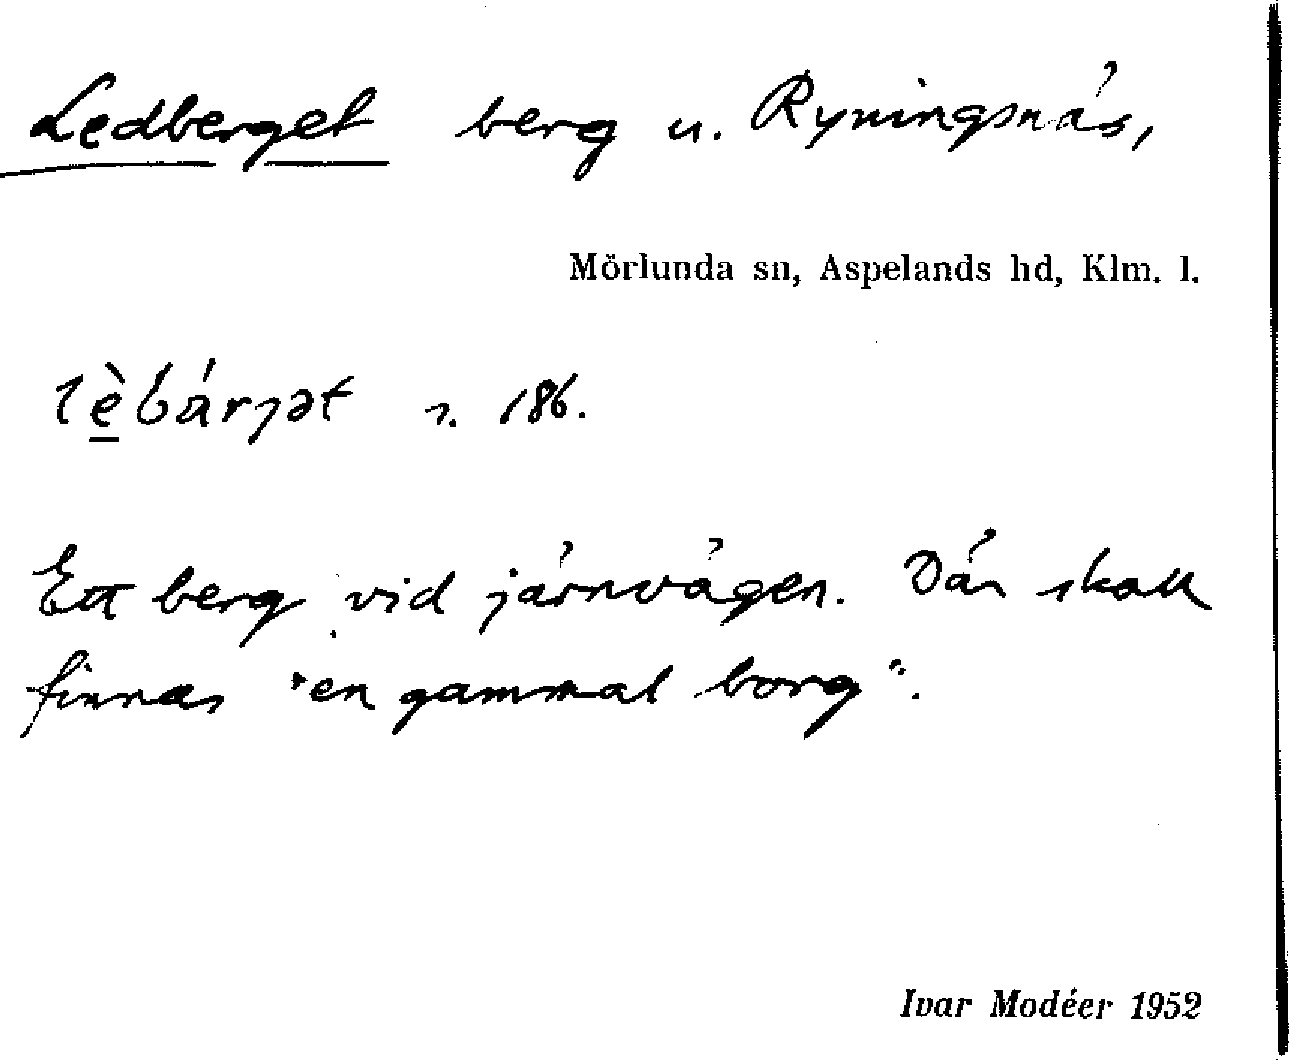 Ledberget berg u. Ryningsnäs,
Mörlunda sn, Aspelands hd, Klm. l.
lèbárjət s. 186.
Ett berg vid järnvägen. Där skall
finnas "en gammal borg".
Ivar Modéer 1952